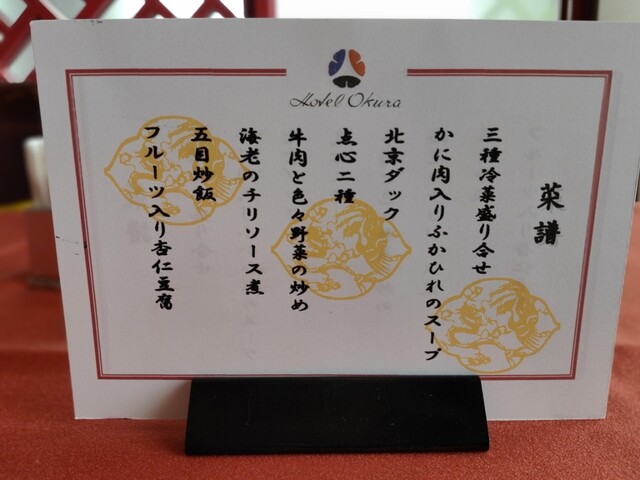 Hotel Okura
菜譜
三種冷菜盛り合せ
かに肉入りふかひれのスープ
北京ダック
点心二種
牛肉と色々野菜の炒め
海老のチリソース煮
五目炒飯
フルーツ入り杏仁豆腐